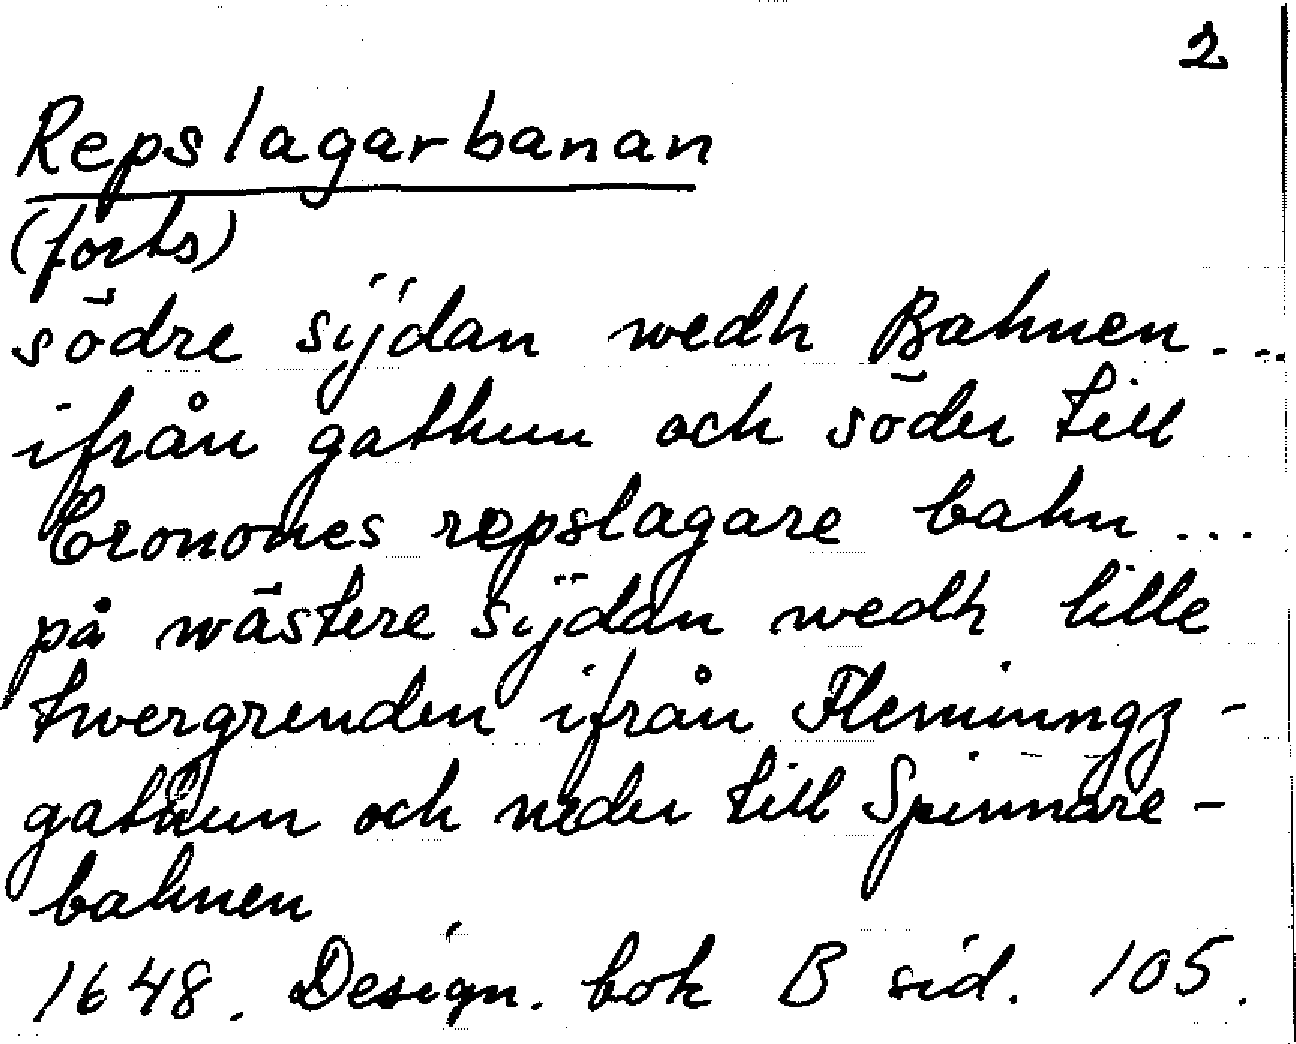 2
Repslagarbanan
(forts)
södre sijdan wedh Bahnen...
ifrån gathun och söder till
Cronones repslagare bahn...
på wästere sijdan wedh lille
twergrenden ifrån Flemingz-
gathun och neder till Spinnare-
bahnen
1648. Design. bok B sid. 105.